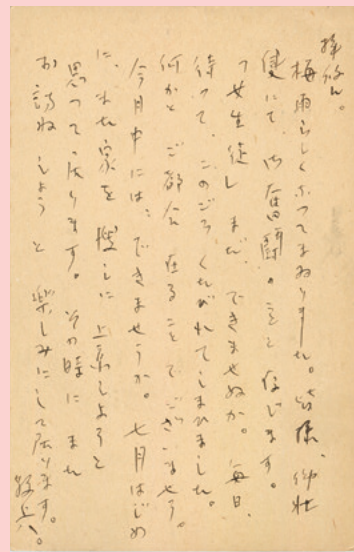 拝啓。
梅雨らしくなつてまゐりました。皆様、御壮
健にて、御奮闘の事と存じます。
「女生徒」まだ、できませぬか。毎日、
待つて、このごろくたびれてしまひました。
何かとご都合在ることでございませう。
今月中には、できませうか。七月はじめ
に、また家を捜しに上京しようと
思つて居ります。その時にまた
お訪ねしようと楽しみにして居ります。
敬具。